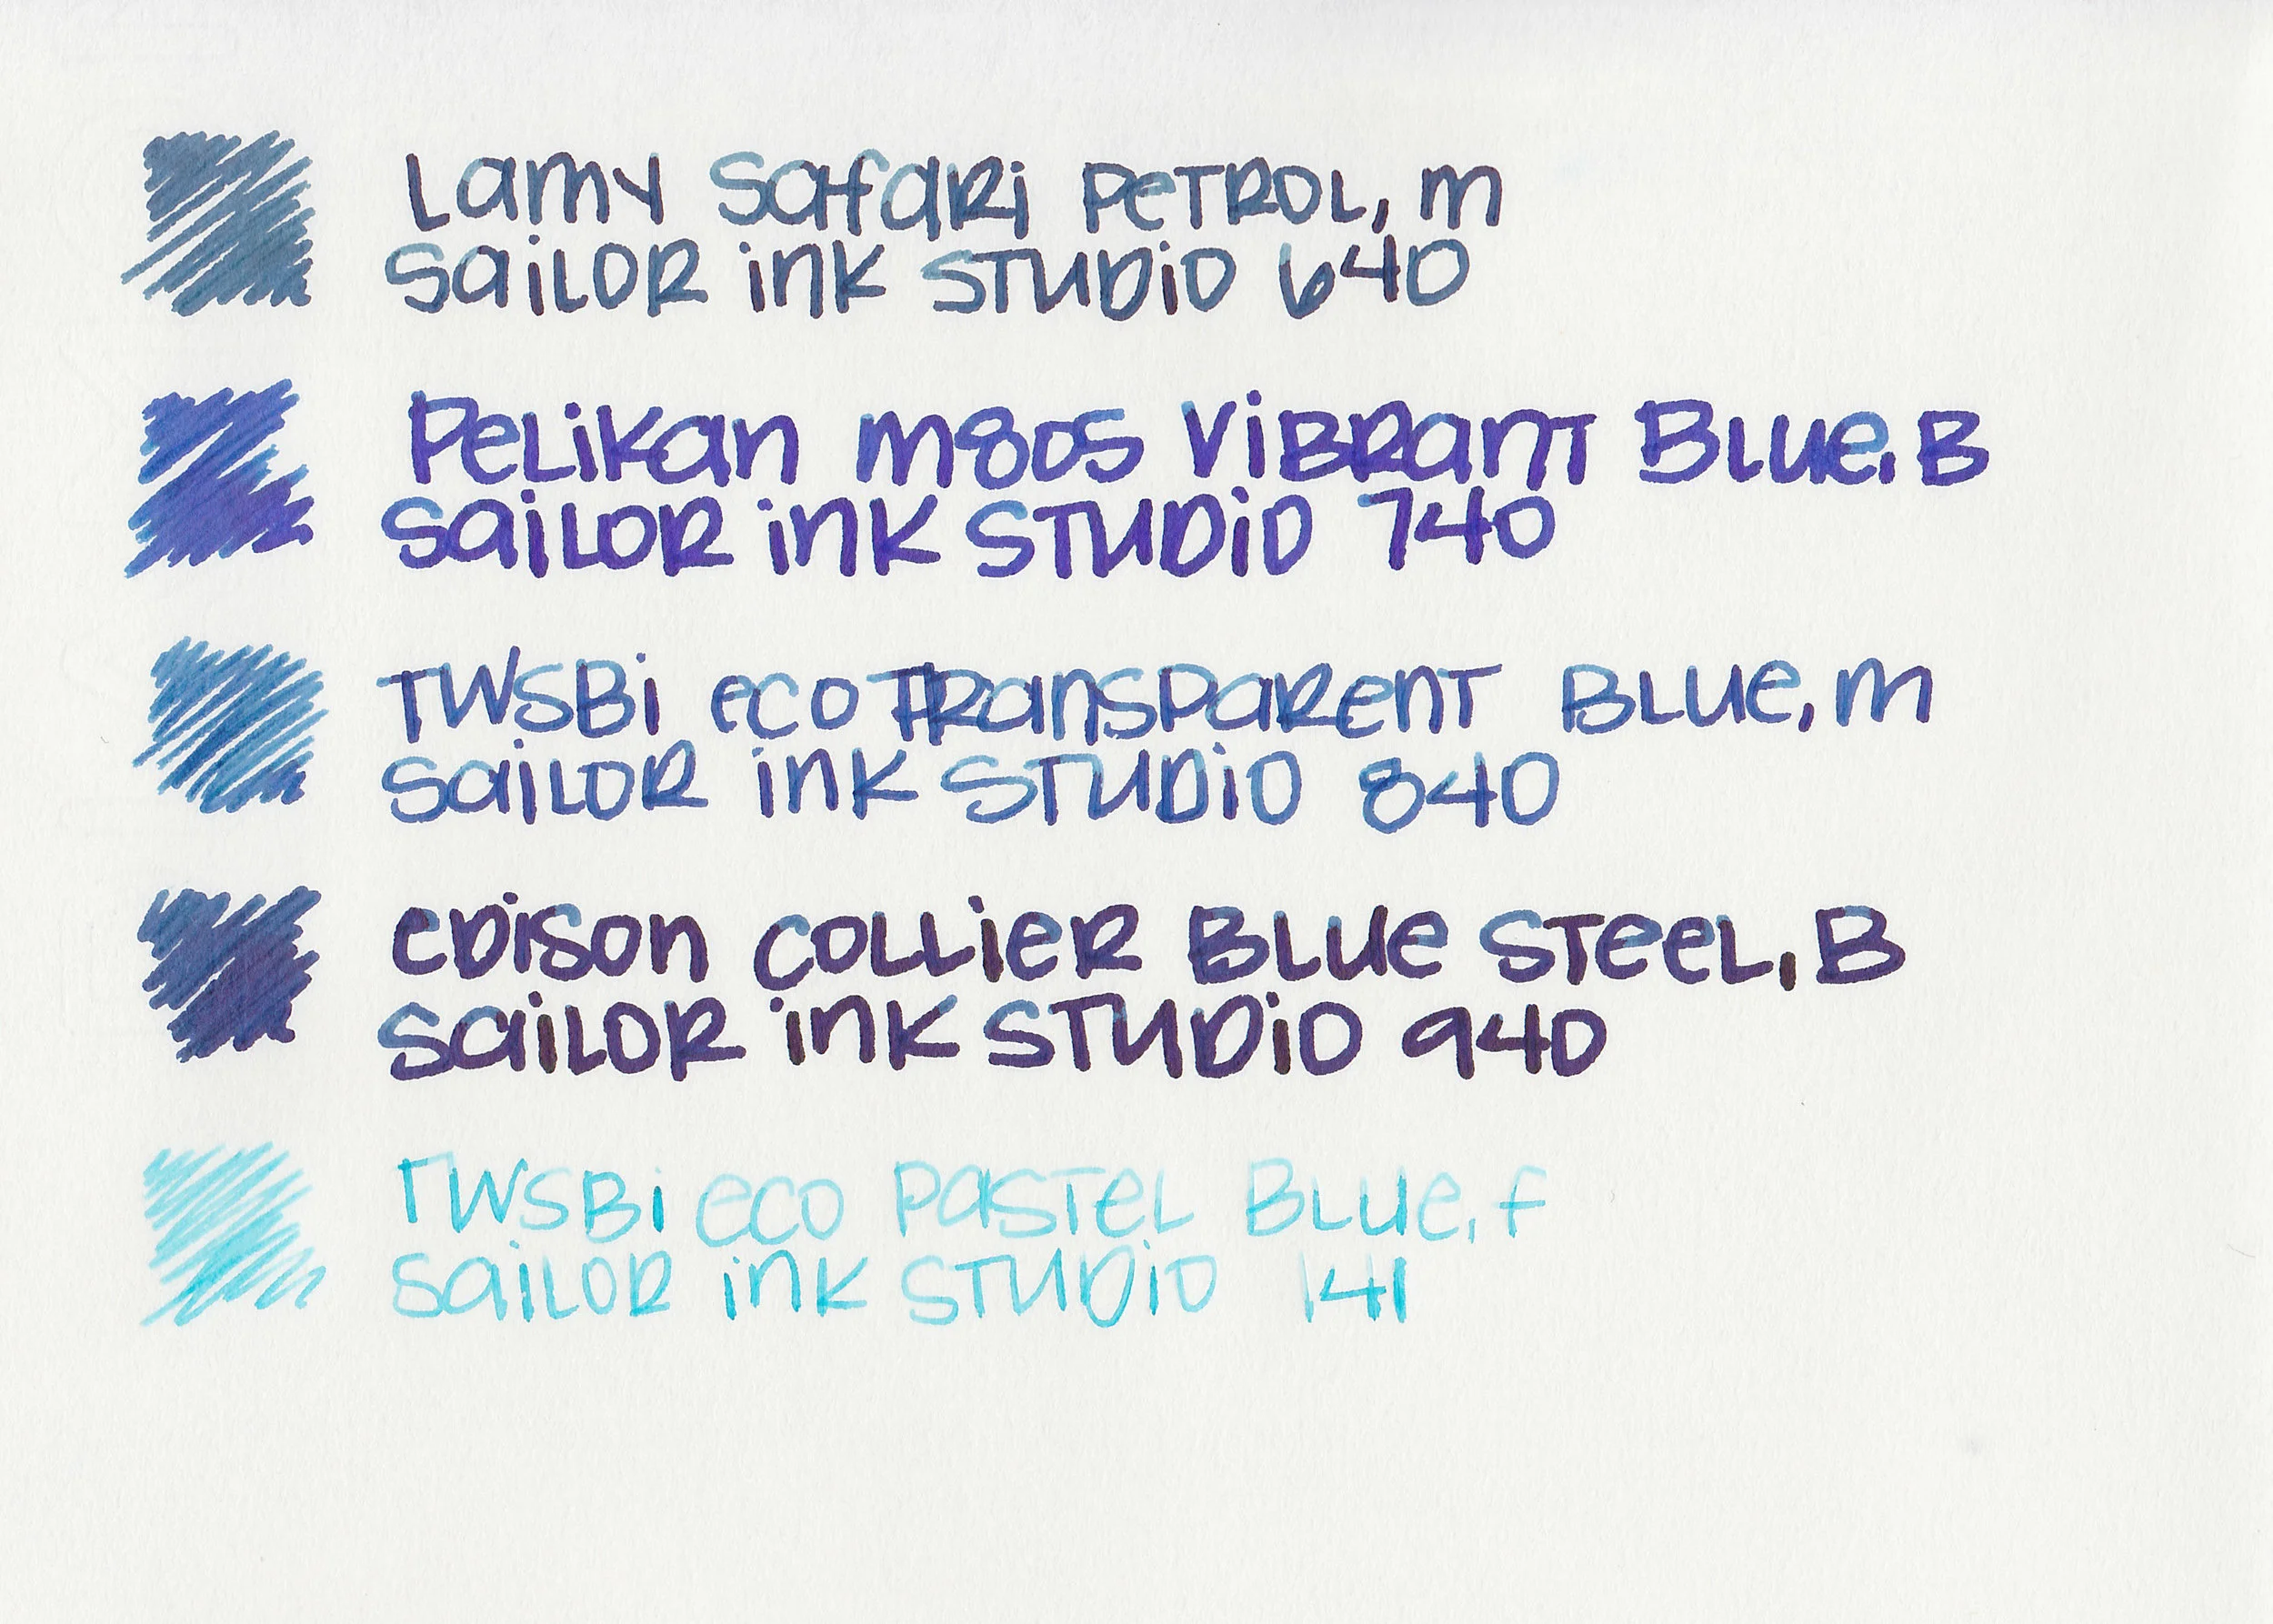 Lamy Safari Petrol, M
Sailor Ink Studio 640
Pelikan M805 Vibrant Blue, B
Sailor Ink Studio 740
TWSBI Eco Transparent Blue, M
Sailor Ink Studio 840
Edison Collier Blue Steel, B
Sailor Ink Studio 940
TWSBI Eco Pastel Blue, F
Sailor Ink Studio 141